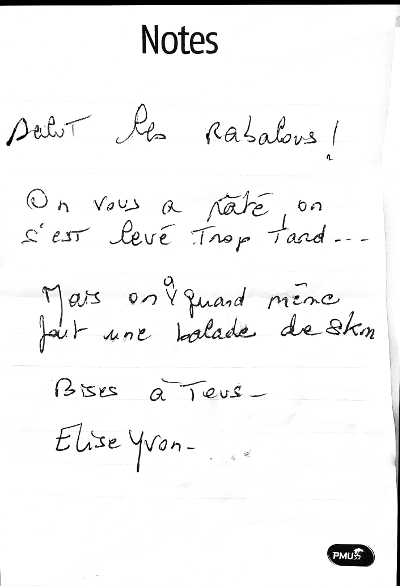 Notes
Salut les Rabalous !
On vous a raté, on
s'est levé trop tard---
Mais on a quand même
fait une balade de 8km
Bises à Tous-
Elise Yvon-
PMU